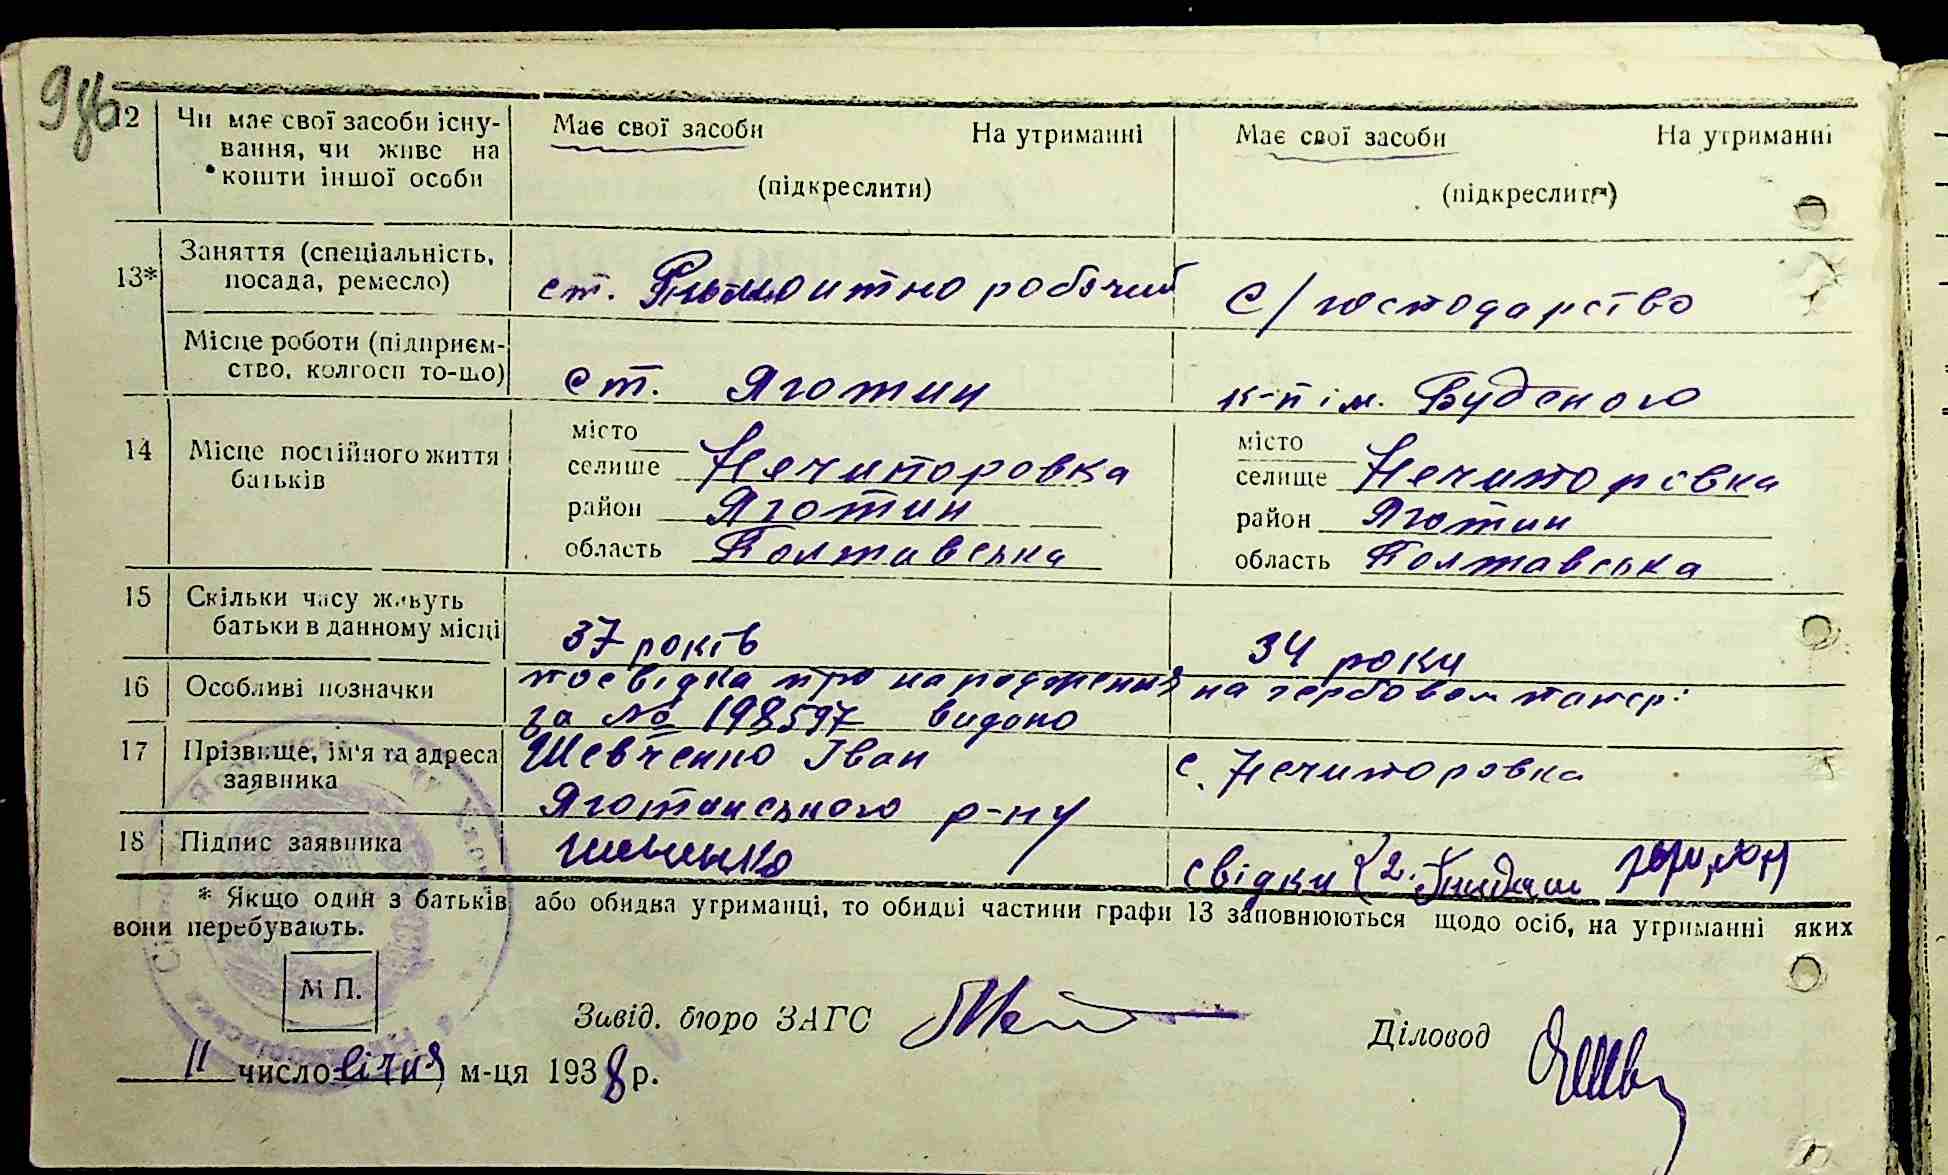 98б
12 Чи має свої засоби існу- Має свої засоби На утриманні Має свої засоби На утриманні
вання, чи живе на
кошти іншої особи (підкреслити) (підкреслити)
13* Заняття (спеціальність,
посада, ремесло) ст. робочий С/господарство
Місце роботи (підприєм-
ство, колгосп то-що) ст. Яготин к-п ім. Будёного
14 Місце постійного життя місто місто
батьків селище Нечипоровка селище Нечипоровка
район Яготин район Яготин
область Полтавська область Полтавська
15 Скільки часу живуть
батьки в данному місці 37 років 34 роки
16 Особливі позначки посвідка про народження на гербовом папері
за № 198597 видано
17 Прізвище, ім'я та адреса Шевченко Іван с. Нечипоровка
заявника Яготинського р-ну
18 Підпис заявника свідки 2.
* Якщо один з батьків або обидва утриманці, то обидві частини графи 13 заповнюються щодо осіб, на утриманні яких
вони перебувають.
М П.
Завід. бюро ЗАГС Діловод
11 число січня м-ця 1938 р.